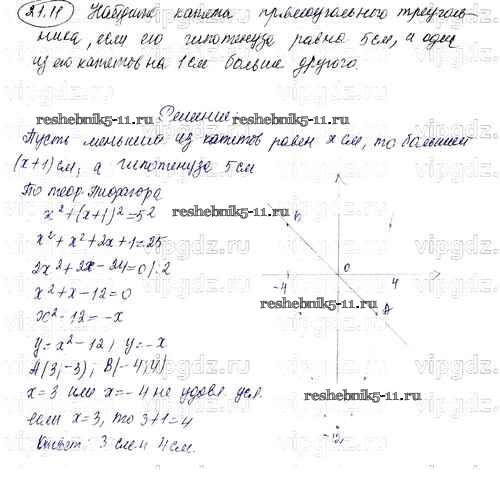 21.11 Найдите катеты прямоугольного треуголь-
ника, если его гипотенуза равна 5 см, а один
из его катетов на 1 см больше другого.
reshebnik5-11.ru
reshebnik5-11.ru
Решение.
Пусть меньший из катетов равен x см, то больший
(x+1) см, а гипотенуза 5 см
По теор. Пифагора
x²+(x+1)²=5²
reshebnik5-11.ru
x²+x²+2x+1=25
2x²+2x-24=0/:2
x²+x-12=0
x²-12=-x
y=x²-12; y=-x
A(3;-3); B(-4;4)
x=3 или x=-4 не удовл. усл.
если x=3, то 3+1=4
Ответ: 3 см и 4 см.
B
0
-4
4
reshebnik5-11.ru
A
reshebnik5-11.ru
-12
vipgdz.ru
vipgdz.ru
vipgdz.ru